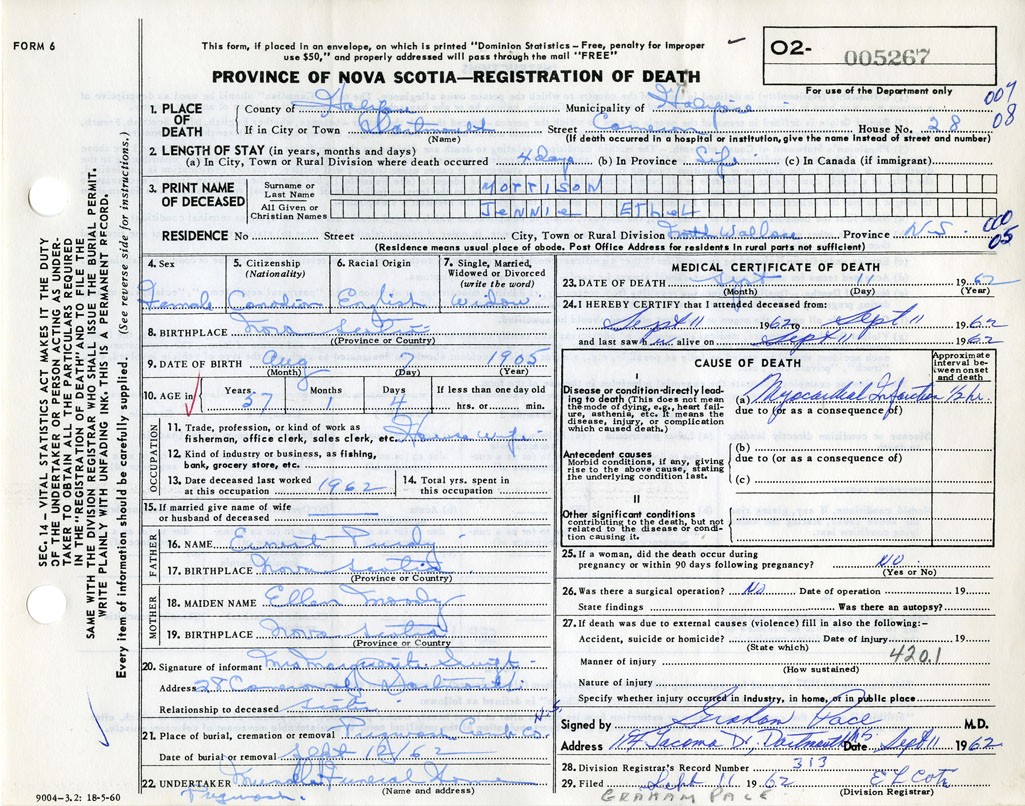 FORM 6
This form, if placed in an envelope, on which is printed "Dominion Statistics – Free, penalty for improper
use $50," and properly addressed will pass through the mail "FREE"
O2- 005267
PROVINCE OF NOVA SCOTIA—REGISTRATION OF DEATH
For use of the Department only
009
08
1. PLACE OF DEATH
County of Halifax Municipality of Halifax
If in City or Town Dartmouth Street Cameron House No. 28
(Name) (If death in hospital or institution, give the name instead of street and number)
2. LENGTH OF STAY (in years, months and days)
(a) In City, Town or Rural Division where death occurred 4 days (b) In Province Life (c) In Canada (if immigrant)
3. PRINT NAME OF DECEASED
Surname or Last Name MORRISON
All Given or Christian Names JENNIE ETHEL
RESIDENCE No Street City, Town or Rural Division Wallace Province N.S.
000
05
(Residence means usual place of abode. Post Office Address for residents in rural parts not sufficient)
4. Sex Female
5. Citizenship (Nationality) Canadian
6. Racial Origin English
7. Single, Married, Widowed or Divorced (write the word) Widow
8. BIRTHPLACE Nova Scotia
(Province or Country)
9. DATE OF BIRTH Aug 7 1905
(Month) (Day) (Year)
10. AGE in Years 57 Months 1 Days 4 If less than one day old
hrs. or min.
OCCUPATION
11. Trade, profession, or kind of work as
fisherman, office clerk, sales clerk, etc. House wife
12. Kind of industry or business, as fishing,
bank, grocery store, etc.
13. Date deceased last worked
at this occupation 1962
14. Total yrs. spent in
this occupation
15. If married give name of wife
or husband of deceased
FATHER
16. NAME Ernest Purdy
17. BIRTHPLACE Nova Scotia
(Province or Country)
MOTHER
18. MAIDEN NAME Ellen Moody
19. BIRTHPLACE Nova Scotia
(Province or Country)
20. Signature of informant Mrs Marguerite
Address 28 Cameron St Dartmouth
Relationship to deceased sister
21. Place of burial, cremation or removal Pugwash Cumb Co. N.S.
Date of burial or removal Sept 12/62
22. UNDERTAKER Funeral Home
(Name and address)
Pugwash.
9004—3.2: 18-5-60
MEDICAL CERTIFICATE OF DEATH
23. DATE OF DEATH Sept 11 1962
(Month) (Day) (Year)
24. I HEREBY CERTIFY that I attended deceased from:
Sept 11 1962 to Sept 11 1962
and last saw h alive on Sept 11 1962
CAUSE OF DEATH
Approximate interval between onset and death
I
Disease or condition directly leading to death (This does not mean
the mode of dying, e.g., heart failure, asthenia, etc. It means the
disease, injury, or complication
which caused death.)
(a) Myocardial Infarction ½ hr.
due to (or as a consequence of)
Antecedent causes
Morbid conditions, if any, giving
rise to the above cause, stating
the underlying condition last.
(b)
due to (or as a consequence of)
(c)
II
Other significant conditions
contributing to the death, but not
related to the disease or condition causing it.
25. If a woman, did the death occur during
pregnancy or within 90 days following pregnancy? NO
(Yes or No)
26. Was there a surgical operation? No Date of operation 19
State findings Was there an autopsy?
27. If death was due to external causes (violence) fill in also the following:–
Accident, suicide or homicide? Date of injury 19
(State which)
Manner of injury 420.1
(How sustained)
Nature of injury
Specify whether injury occurred in industry, in home, or in public place
Signed by Graham Pace M.D.
Address Tacoma Dr, Dartmouth NS Date Sept 11 1962
28. Division Registrar's Record Number 313
29. Filed Sept 11 1962 E L Cote
(Division Registrar)
GRAHAM PACE
SEC. 14 – VITAL STATISTICS ACT MAKES IT THE DUTY
OF THE UNDERTAKER OR PERSON ACTING AS UNDERTAKER
TO OBTAIN ALL THE PARTICULARS REQUIRED
IN THE "REGISTRATION OF DEATH" AND TO FILE THE
SAME WITH THE DIVISION REGISTRAR WHO SHALL ISSUE THE BURIAL PERMIT.
WRITE PLAINLY WITH UNFADING INK. THIS IS A PERMANENT RECORD.
Every item of information should be carefully supplied. (See reverse side for instructions.)